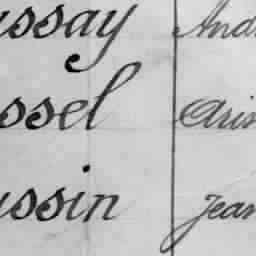 ussay And
ssel Aris
ussin Jean